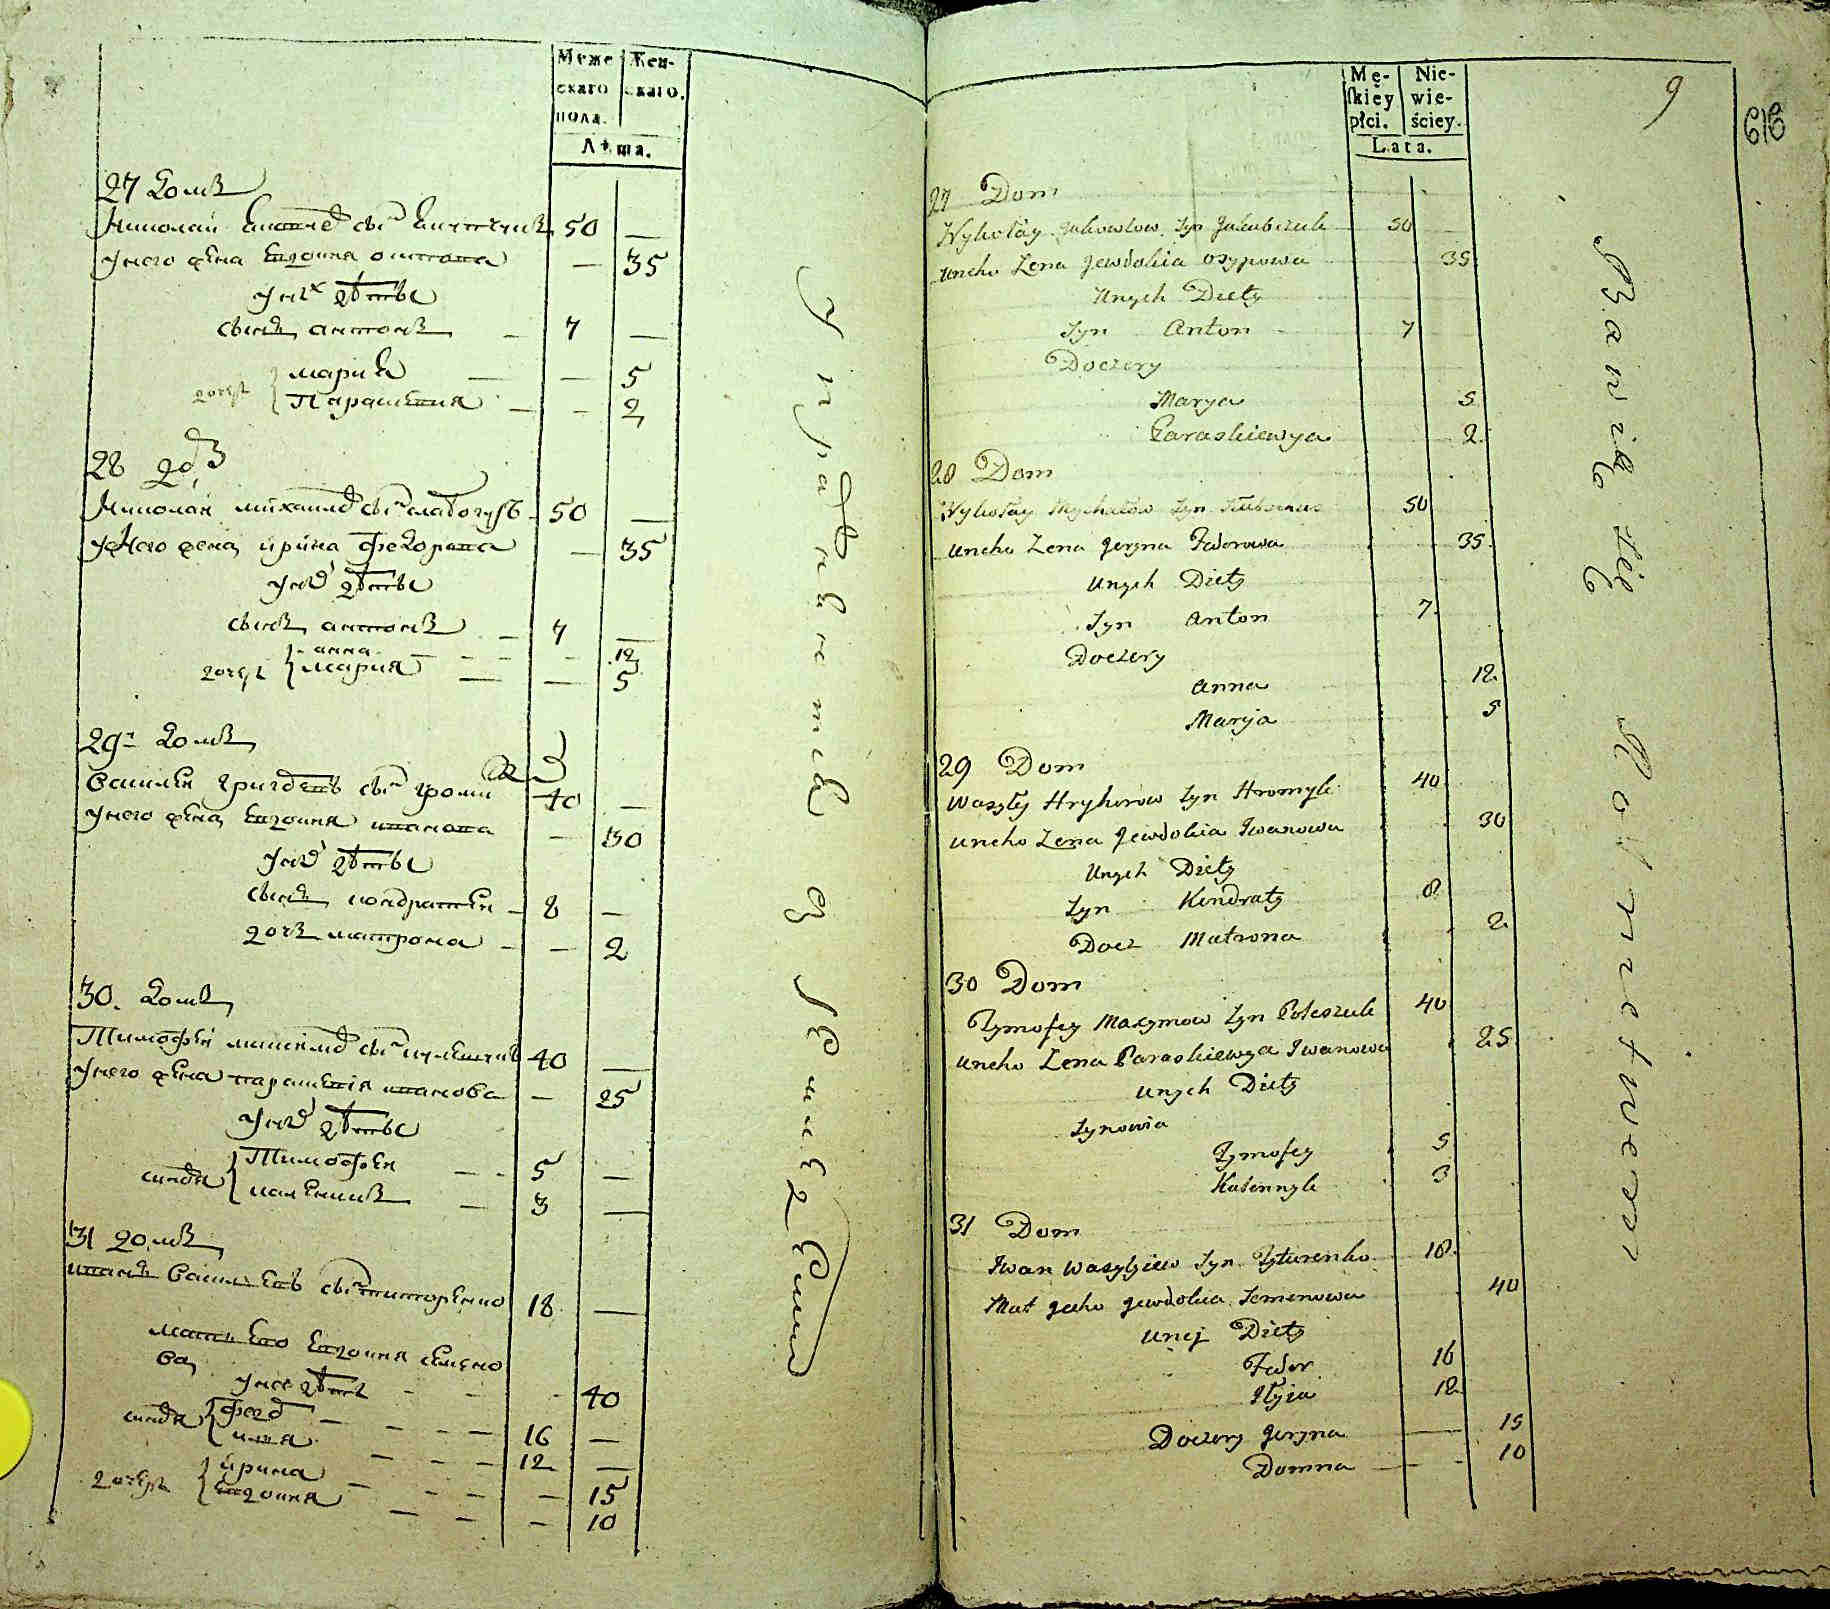 Мꙋже Жен-
скаго скаго.
пола.
Лѣта.
27 домъ
Николай 50 —
у него жена Евдокия — 35
у них дѣти
сынъ антонъ — 7 —
дочери
мария — — 5
Параскевия — — 2
28 домъ
Николай михайловъ сынъ 50 —
у него жена ирина федорова — 35
у них дѣти
сынъ антонъ — 7 —
анна — — 12
дочери мария — — 5
29й домъ
Василей григоревъ сынъ громи 40 —
у него жена Евдокия иванова — 30
у них дѣти
сынъ кондратей — 8 —
дочь матрона — — 2
30. домъ
Тимофей сынъ 40 —
у него жена параскевия иванова — 25
у них дѣти
синовя Тимофей — 5 —
каленикъ — 3 —
31 домъ
иванъ Василевъ сынъ титоренко 18 —
мати его Евдокия семено
ва
у нее дѣти — — 40
синовя федор — 16 —
илия — 12 —
дочери ирина — — 15
Евдокия — — 10
Упражняетца в земледелии
Mę- Nie-
ſkiey wie-
płci. ściey.
Lata.
9
27 Dom
Nykołay Jakowlow Syn Jakubczuk 50
uneho Zena Jewdokia Osypowa 35
Unych Diety
Syn Anton 7
Doczery
Marya 5
Paraskiewya 2
28 Dom
Nykołay Mychałow Syn 50
uneho Zena Jeryna Fedorowa 35
unych Diety
Syn Anton 7
Doczery
Anna 12
Maryja 5
29 Dom
Wasyly Hryhorow Syn Hromyk 40
uneho Zena Jewdokia Iwanowa 30
Unych Diety
Syn Kindraty 8
Docz Matrona 2
30 Dom
Tymofey Maxymow Syn Poleszuk 40
uneho Zena Paraskiewya Iwanowa 25
unych Diety
Synowia
Tymofey 5
Kałennyk 3
31 Dom
Iwan Wasylyiew Syn Tyturenko 18
Mat jeho Jewdokia Semenowa 40
unej Diety
Fedor 16
Iłyia 12
Doczery Jeryna 15
Domna 10
Bawią się Rolnictwem